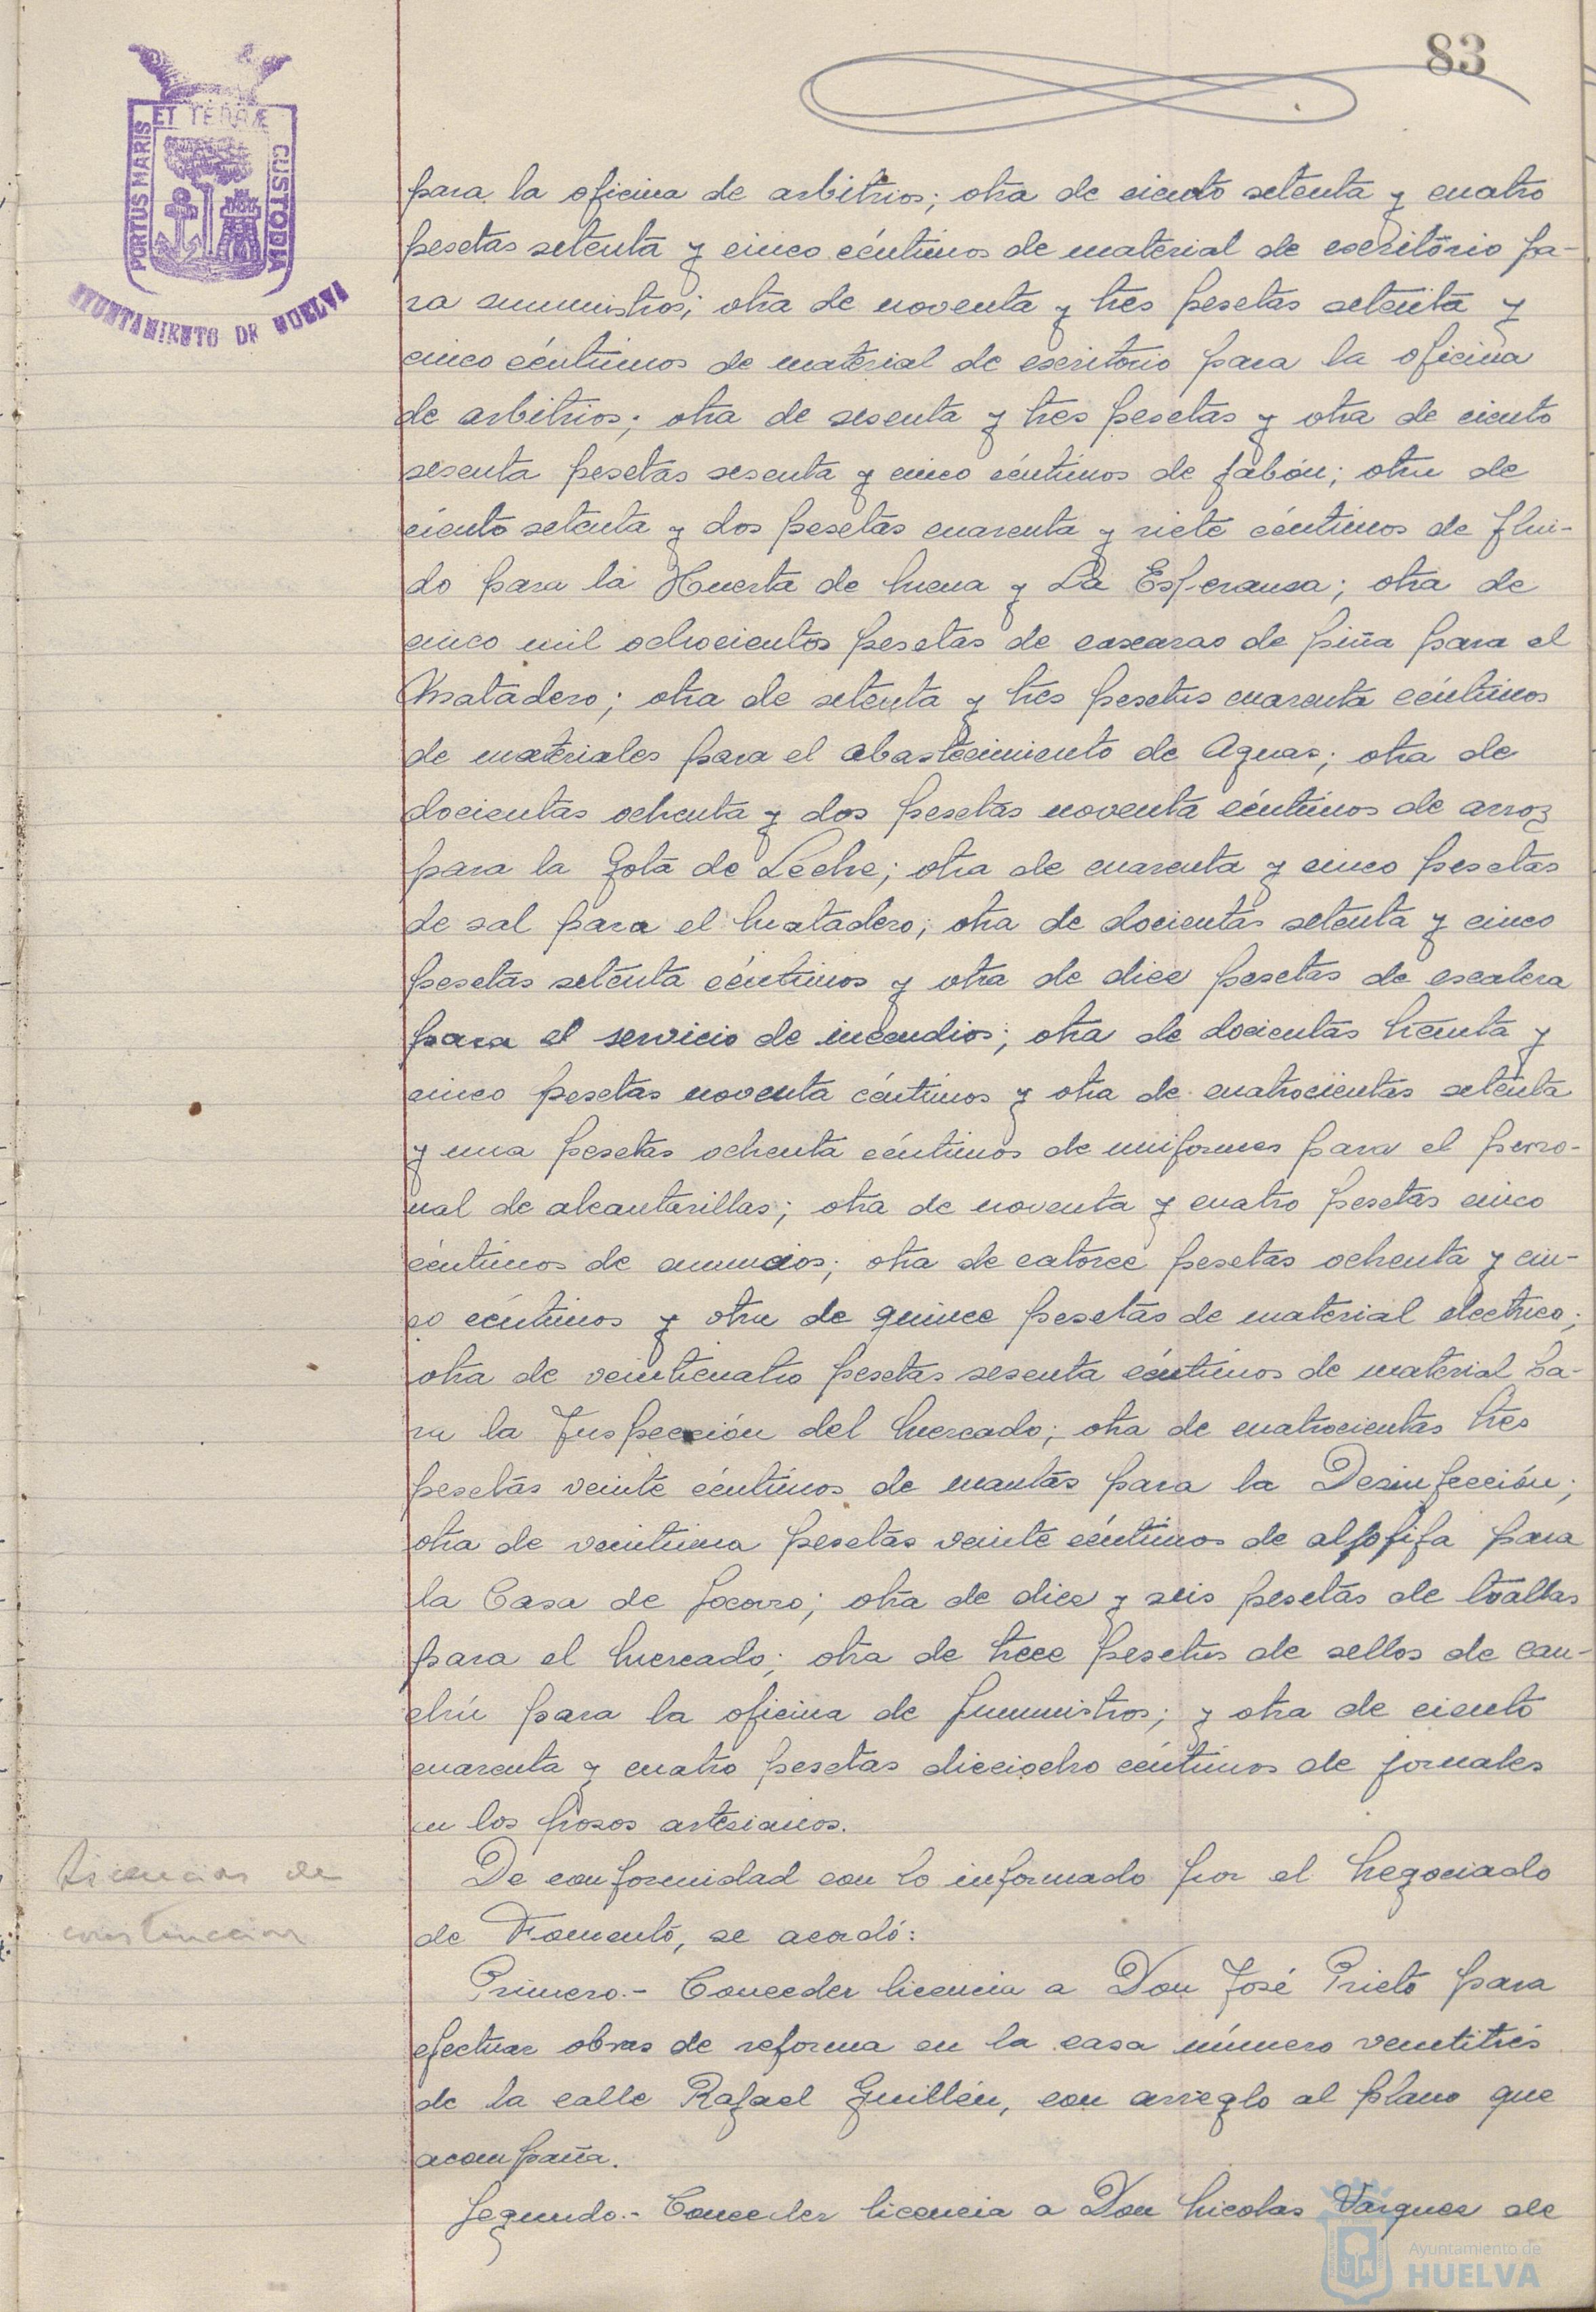 83
PORTUS MARIS ET TERRÆ CUSTODIA
AYUNTAMIENTO DE HUELVA
para la oficina de arbitrios; otra de ciento setenta y cuatro
pesetas setenta y cinco céntimos de material de escritorio pa-
ra suministros; otra de noventa y tres pesetas setenta y
cinco céntimos de material de escritorio para la oficina
de arbitrios; otra de sesenta y tres pesetas y otra de ciento
sesenta pesetas sesenta y cinco céntimos de jabón; otra de
ciento setenta y dos pesetas cuarenta y siete céntimos de flui-
do para la Huerta de Mena y La Esperanza; otra de
cinco mil ochocientos pesetas de cascaras de piña para el
Matadero; otra de setenta y tres pesetas cuarenta céntimos
de materiales para el abastecimiento de Aguas; otra de
docientas ochenta y dos pesetas noventa céntimos de arroz
para la Gota de Leche; otra de cuarenta y cinco pesetas
de sal para el Matadero; otra de docientas setenta y cinco
pesetas setenta céntimos y otra de diez pesetas de escalera
para el servicio de incendios; otra de docientas treinta y
cinco pesetas noventa céntimos y otra de cuatrocientas setenta
y una pesetas ochenta céntimos de uniformes para el perso-
nal de alcantarillas; otra de noventa y cuatro pesetas cinco
céntimos de anuncios; otra de catorce pesetas ochenta y cin-
co céntimos y otra de quince pesetas de material electrico;
otra de veinticuatro pesetas sesenta céntimos de material pa-
ra la Inspección del Mercado; otra de cuatrocientas tres
pesetas veinte céntimos de mantas para la Desinfección;
otra de veintiuna pesetas veinte céntimos de aljofifa para
la Casa de Socorro; otra de diez y seis pesetas de toallas
para el Mercado; otra de trece pesetas de sellos de cau-
chú para la oficina de Suministros; y otra de ciento
cuarenta y cuatro pesetas dieciocho céntimos de jornales
en los pozos artesianos.
Licencias de
construccion
De conformidad con lo informado por el Negociado
de Fomento, se acordó:
Primero.- Conceder licencia a Don José Prieto para
efectuar obras de reforma en la casa número veintitrés
de la calle Rafael Guillén, con arreglo al plano que
acompaña.
Segundo.- Conceder licencia a Don Nicolas Vazquez de
Ayuntamiento de
HUELVA